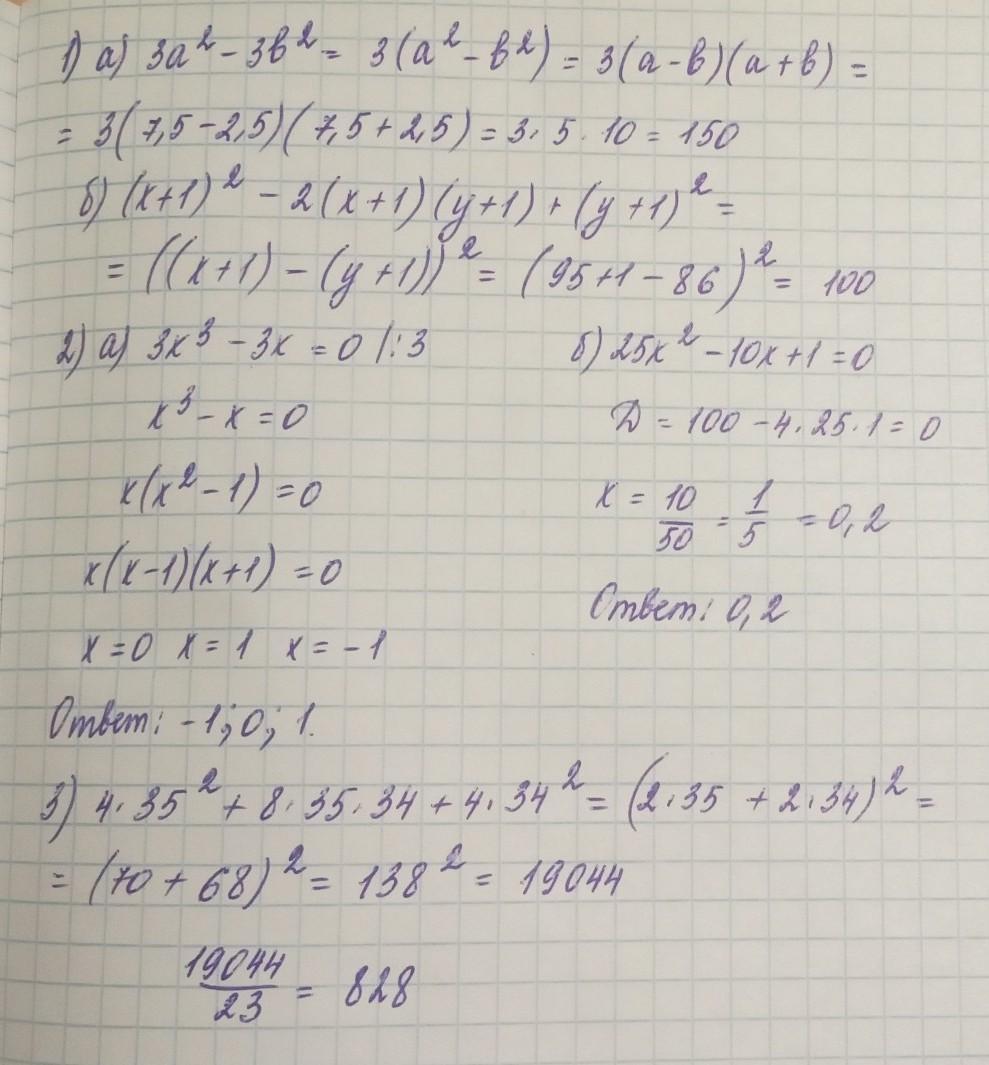 1) а) 3a² - 3b² = 3(a² - b²) = 3(a - b)(a + b) =
= 3(7,5 - 2,5)(7,5 + 2,5) = 3 · 5 · 10 = 150
б) (x+1)² - 2(x+1)(y+1) + (y+1)² =
= ((x+1) - (y+1))² = (95+1-86)² = 100
2) а) 3x³ - 3x = 0 |:3
x³ - x = 0
x(x² - 1) = 0
x(x-1)(x+1) = 0
x = 0 x = 1 x = -1
Ответ: -1; 0; 1.
б) 25x² - 10x + 1 = 0
Д = 100 - 4 · 25 · 1 = 0
x = 10/50 = 1/5 = 0,2
Ответ: 0,2
3) 4 · 35² + 8 · 35 · 34 + 4 · 34² = (2 · 35 + 2 · 34)² =
= (70 + 68)² = 138² = 19044
19044/23 = 828